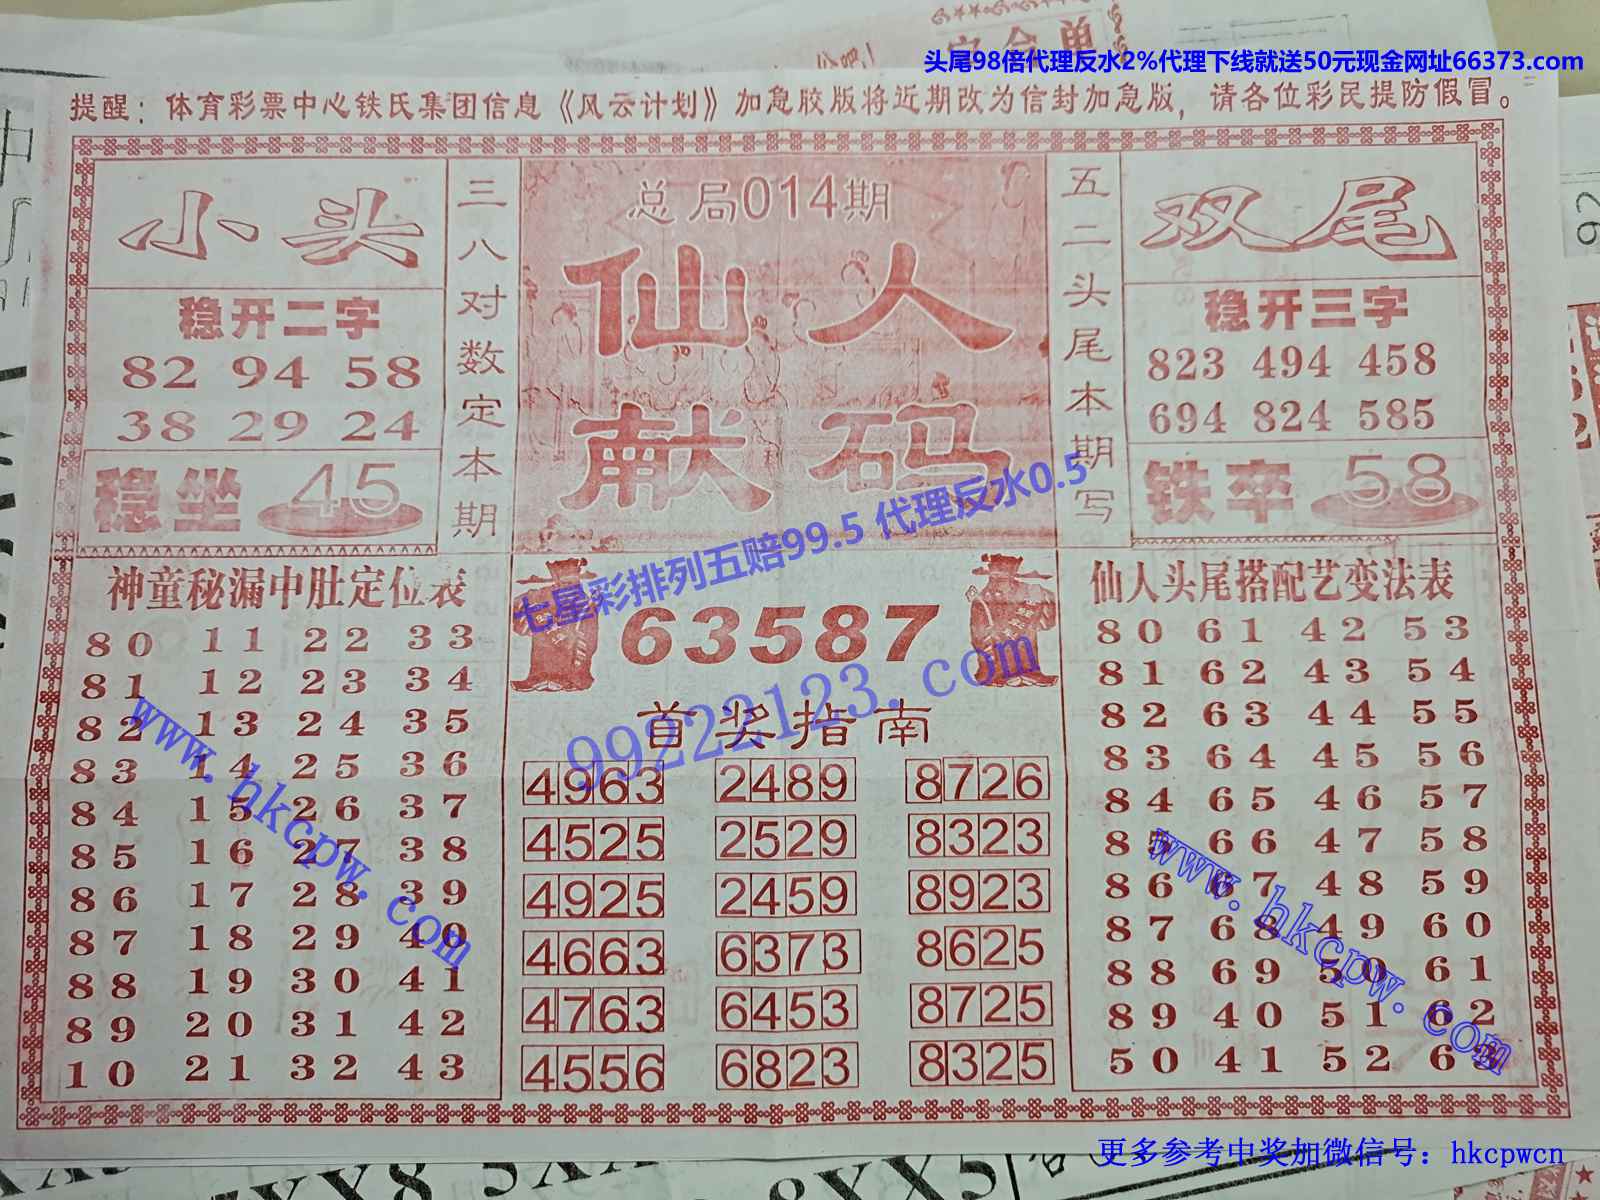 头尾98倍代理反水2%代理下线就送50元现金网址66373.com
提醒：体育彩票中心铁氏集团信息《风云计划》加急胶版将近期改为信封加急版，请各位彩民提防假冒。
小头
稳开二字
82 94 58
38 29 24
稳坐 45
三八对数定本期
总局014期
仙人
献码
五二头尾本期写
双尾
稳开三字
823 494 458
694 824 585
铁卒 58
七星彩排列五赔99.5 代理反水0.5
神童秘漏中肚定位表
80 11 22 33
81 12 23 34
82 13 24 35
83 14 25 36
84 15 26 37
85 16 27 38
86 17 28 39
87 18 29 40
88 19 30 41
89 20 31 42
10 21 32 43
www.hkcpw.com
63587
99222123.com
首奖指南
4963 2489 8726
4525 2529 8323
4925 2459 8923
4663 6373 8625
4763 6453 8725
4556 6823 8325
仙人头尾搭配艺变法表
80 61 42 53
81 62 43 54
82 63 44 55
83 64 45 56
84 65 46 57
85 66 47 58
86 67 48 59
87 68 49 60
88 69 50 61
89 40 51 62
50 41 52 63
www.hkcpw.com
更多参考中奖加微信号：hkcpwcn